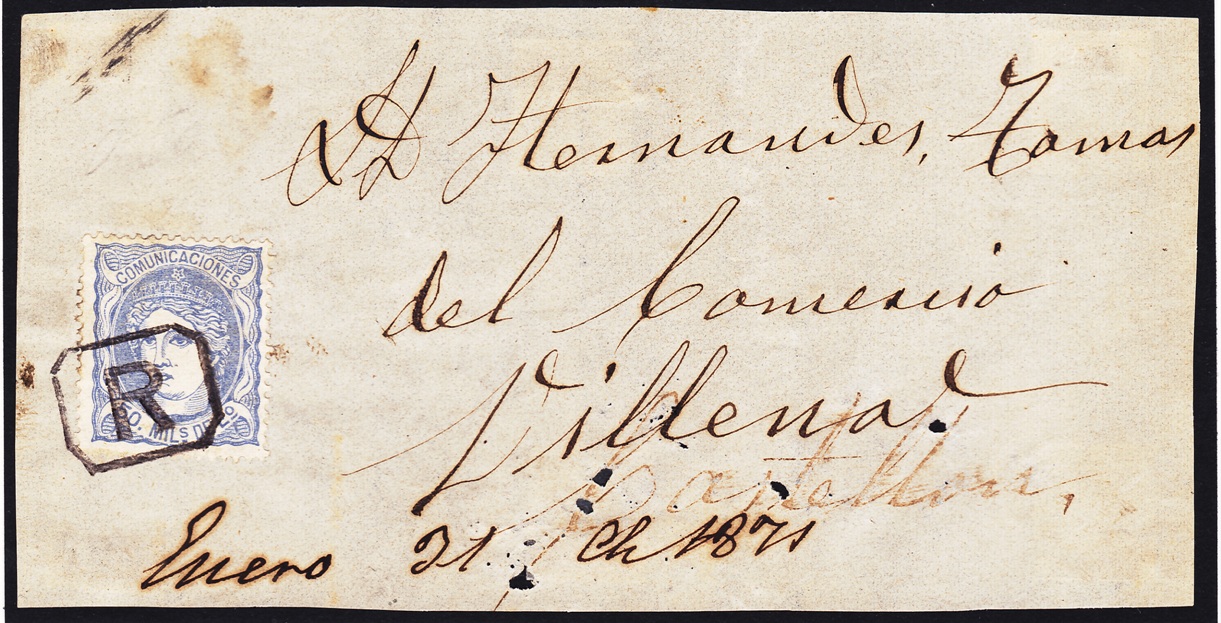 D Hernandes, Tomas
del Comersio
Villena
Castellon,
Enero 31 de 1871
COMUNICACIONES
50. MILS DE E.
R